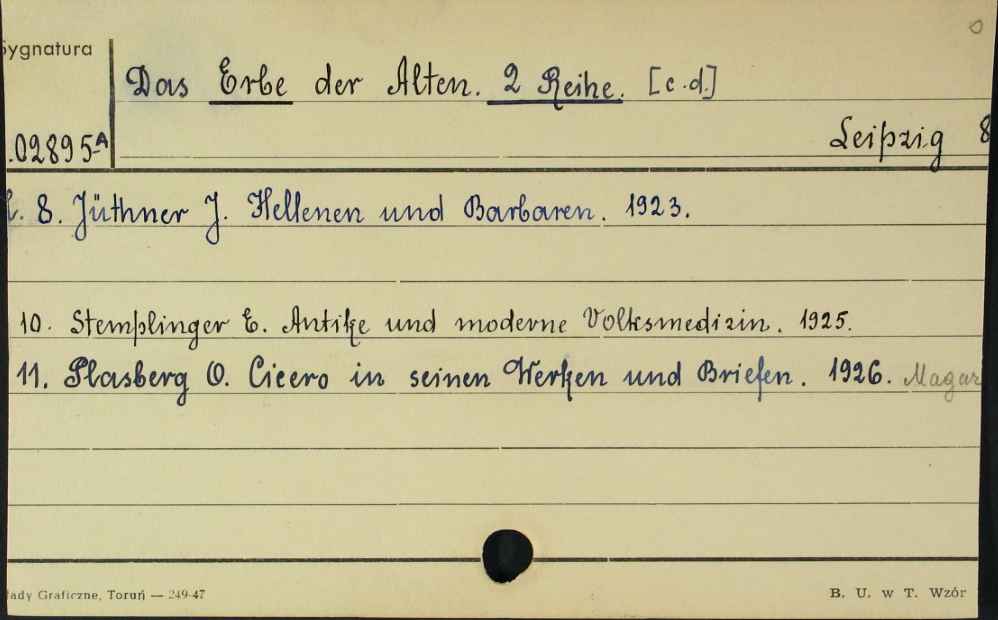 Sygnatura
Das Erbe der Alten. 2 Reihe. [c.d.]
.02895A
Leipzig 8
8. Jüthner J. Hellenen und Barbaren. 1923.
10. Stemplinger E. Antike und moderne Volksmedizin. 1925.
11. Plasberg O. Cicero in seinen Werken und Briefen. 1926. Magaz
łady Graficzne, Toruń — 249-47
B. U. w T. Wzór